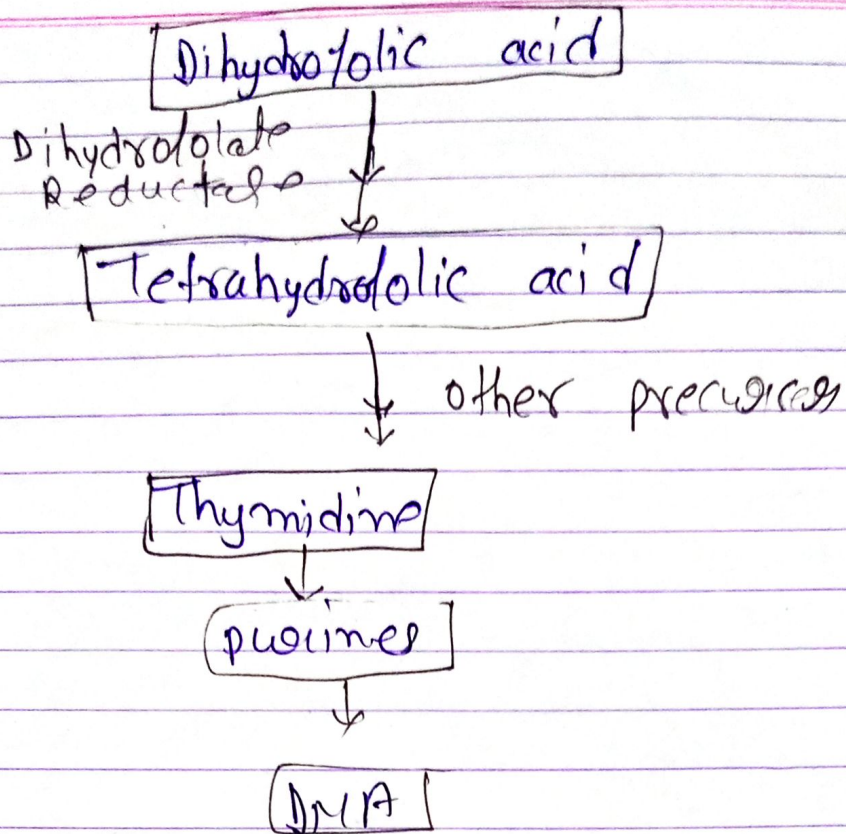 Dihydrofolic acid
Dihydrofolate
Reductase
Tetrahydrofolic acid
other precursors
Thymidine
purines
DNA